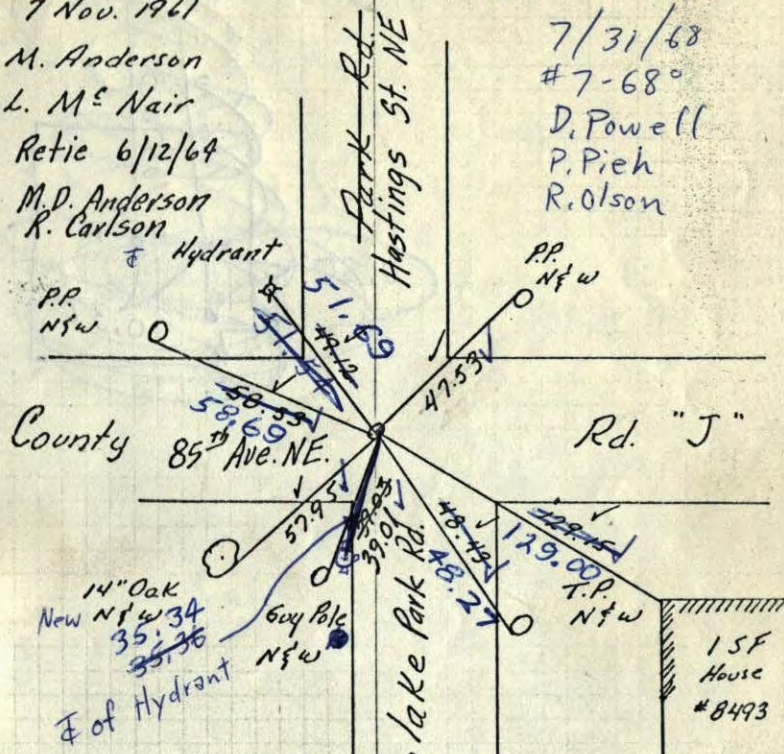 7 Nov. 1961
M. Anderson
L. Mc Nair
Retie 6/12/64
M.D. Anderson
R. Carlson
7/31/68
#7-68°
D. Powell
P. Pieh
R. Olson
Park Rd.
Hastings St. NE
℄ Hydrant
P.P.
N & W
P.P.
N & W
51.69
51.54
49.12
47.53
58.53
58.69
County Rd. "J"
85th Ave. NE.
57.95
39.03
39.01
48.49
48.27
129.15
129.00
14" Oak
N & W
New
35.34
35.36
℄ of Hydrant
Guy Pole
N & W
Lake Park Rd.
T.P.
N & W
1 SF
House
#8493